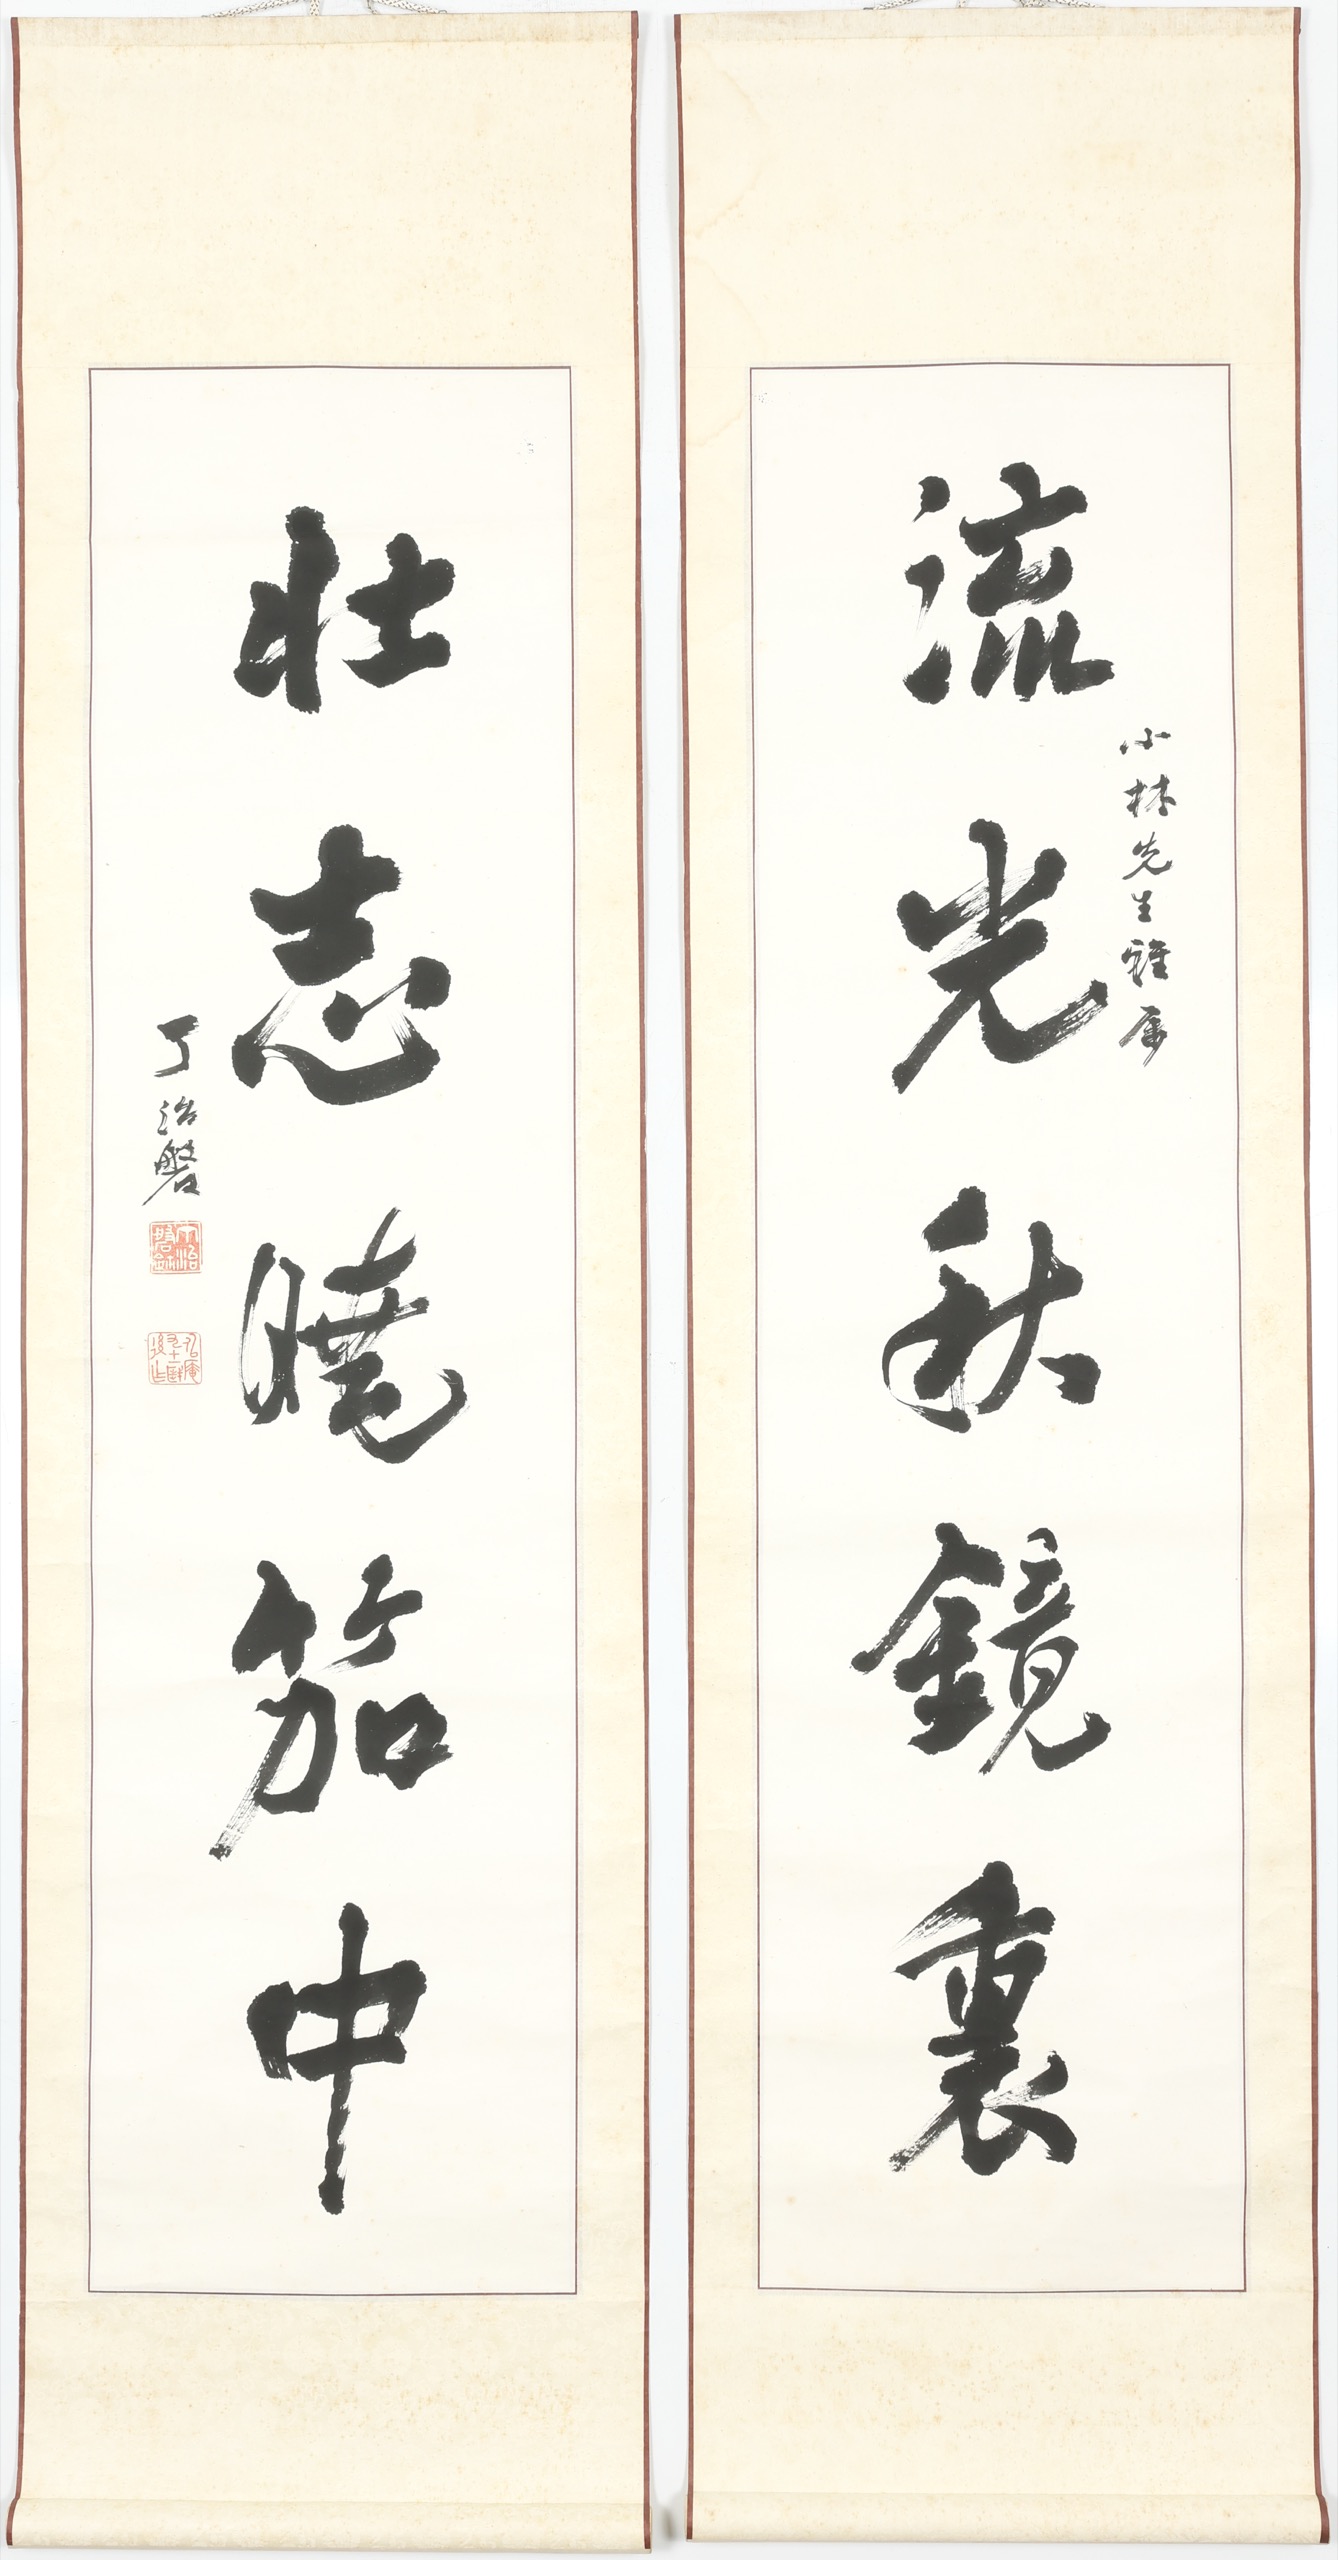 小林先生雅屬
流光秋鏡裏
壯志曉笳中
丁治磐